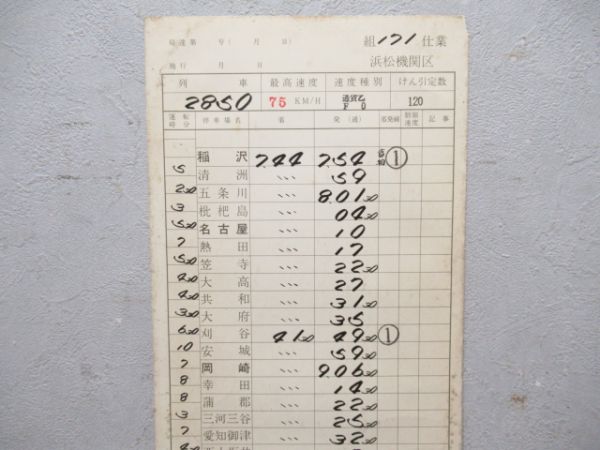 局達第 号( 月 日) 組 171 仕業
施行 月 日 浜松機関区
列 車 最高速度 速度種別 けん引定数
2850 75 KM/H 通貨乙 F 0 120
運転時分 停車場名 着 発(通) 着発線 制限速度 記事
稲沢 7.44 7.54 ①
5 清洲 〃 59
2 30 五条川 〃 8.01 30
3 枇杷島 〃 04 30
5 30 名古屋 〃 10
7 熱田 〃 17
5 30 笠寺 〃 22 30
4 30 大高 〃 27
4 30 共和 〃 31 30
3 30 大府 〃 35
6 30 刈谷 41 30 49 30 ①
10 安城 〃 59 30
7 岡崎 〃 9.06 30
8 幸田 〃 14 30
8 蒲郡 〃 22 30
3 三河三谷 〃 25 30
7 愛知御津 〃 32 30